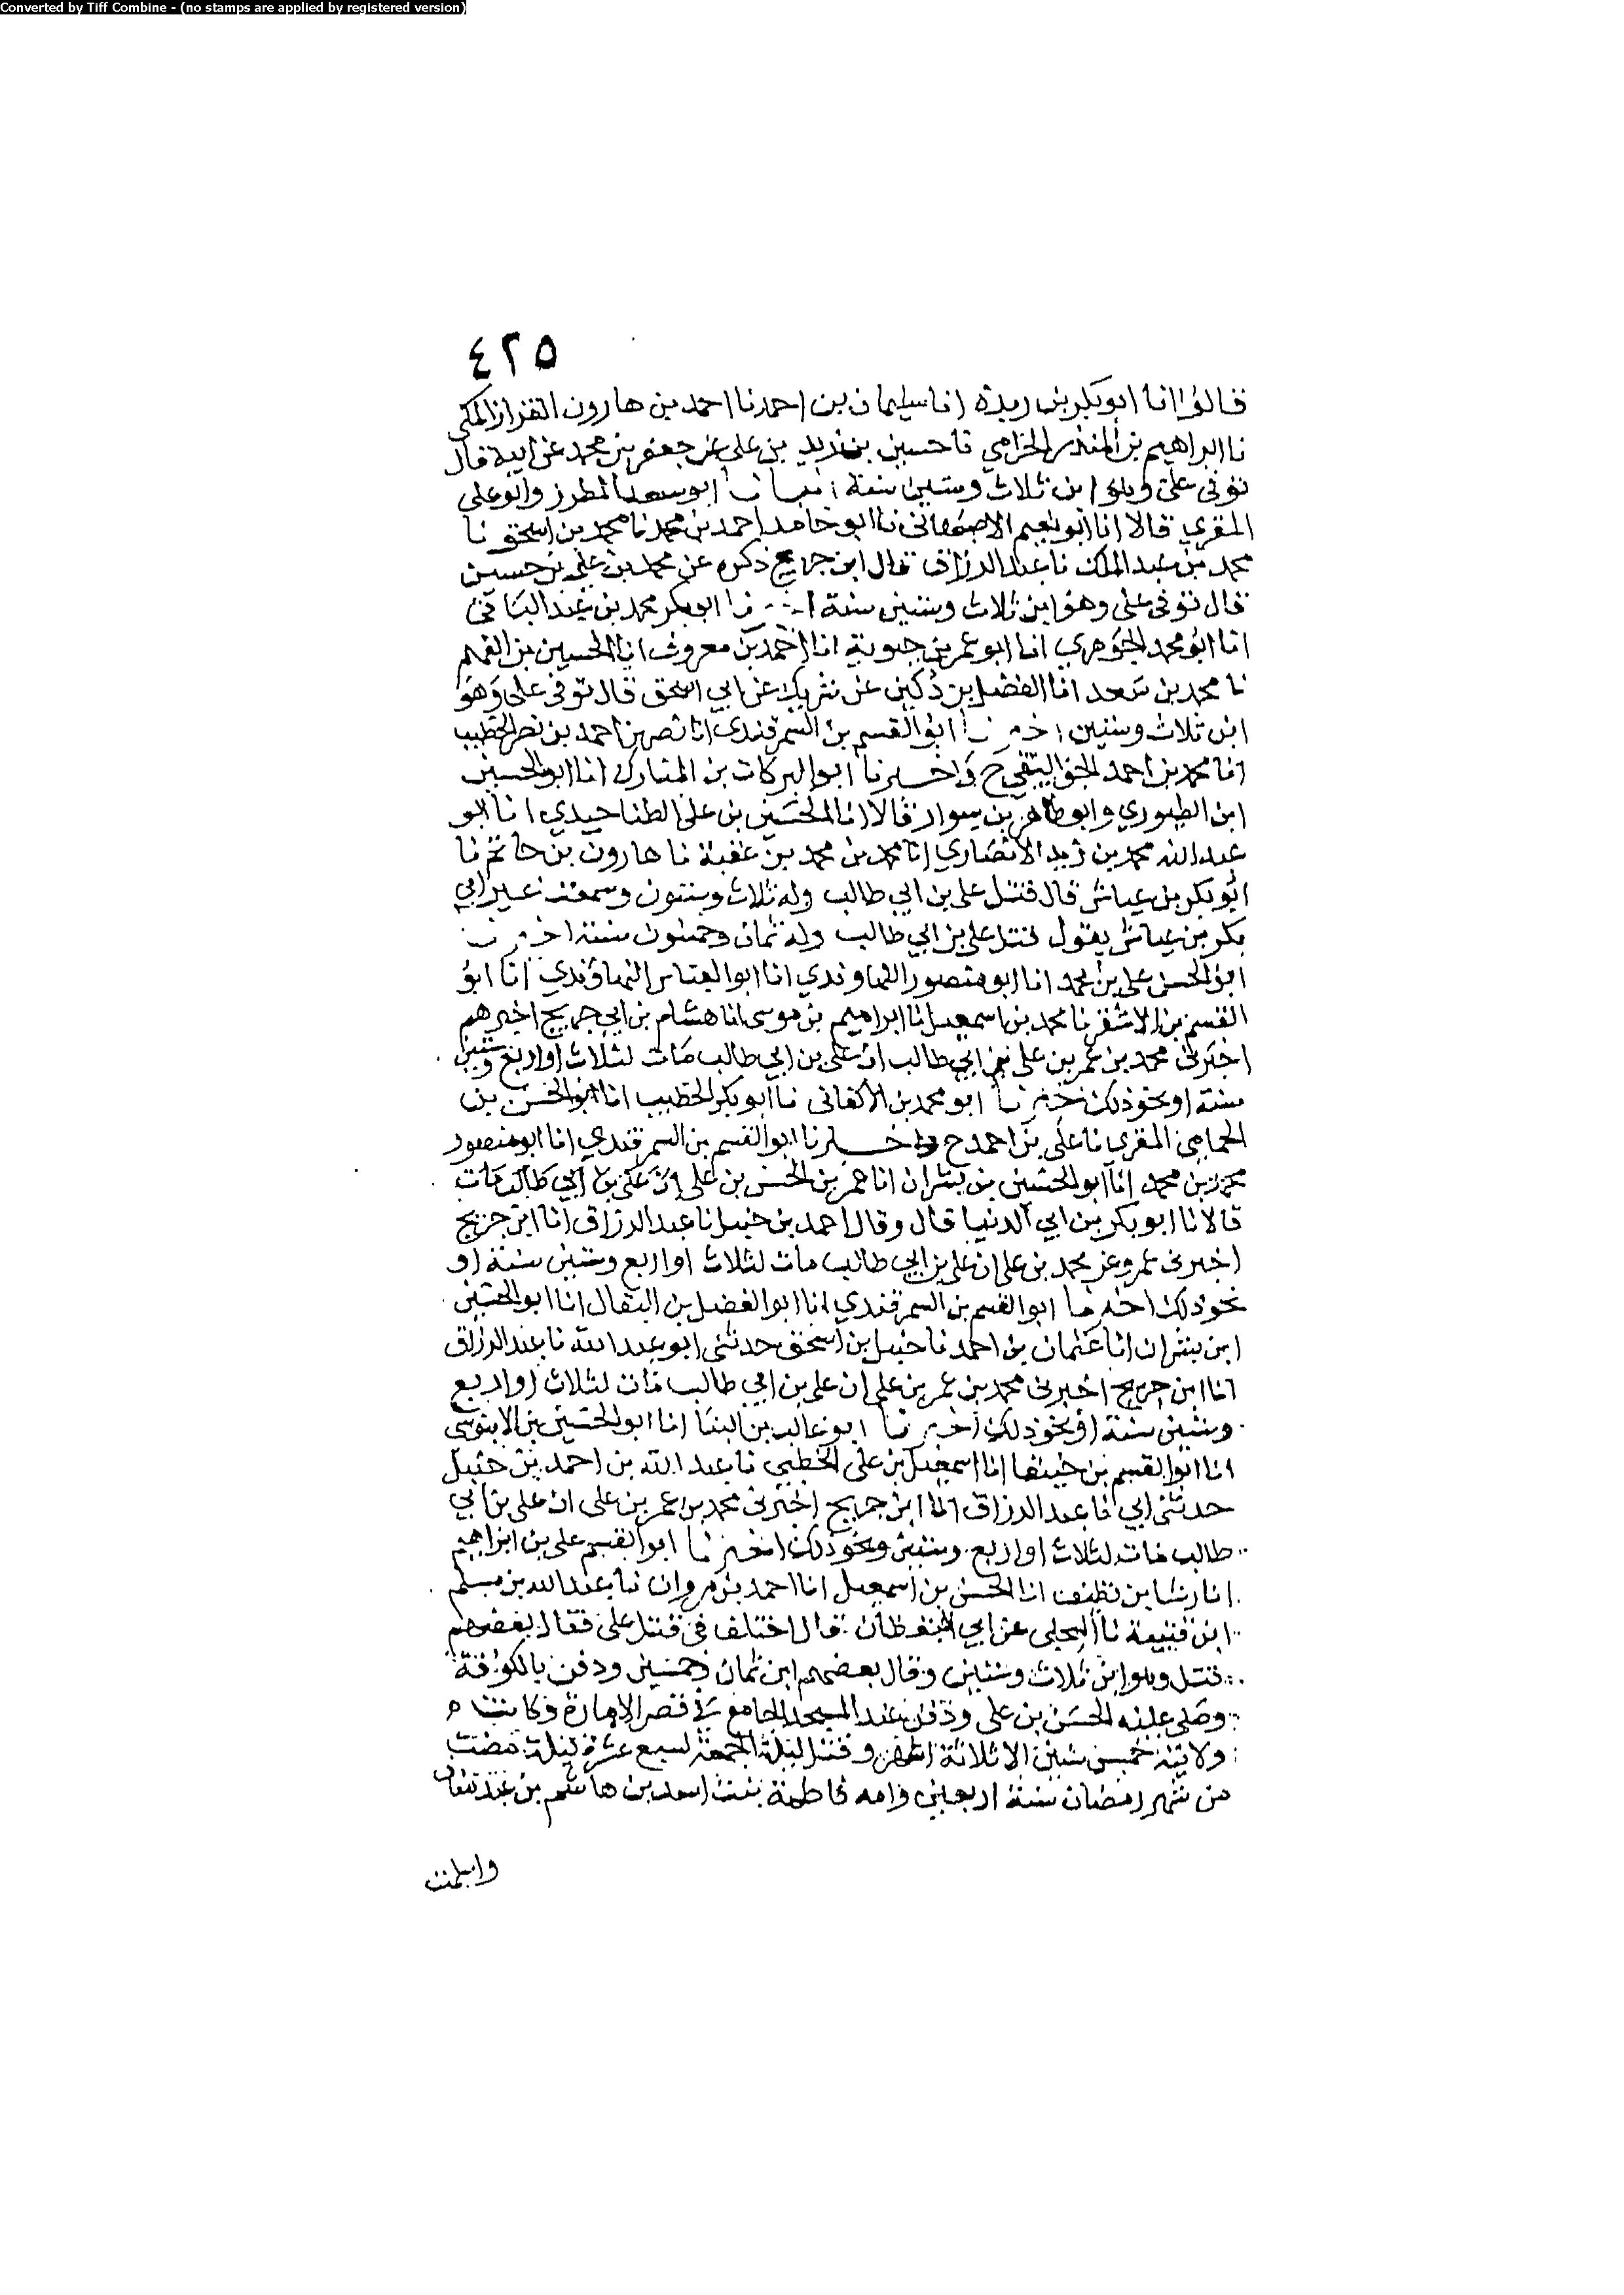 Converted by Tiff Combine - (no stamps are applied by registered version)
٤٢٥
قالوا انا ابو بكر بن ريدة انا سليمان بن احمد نا احمد بن هارون القزاز المكي
نا ابراهيم بن المنذر الحزامي نا حسين بن زيد بن علي عن جعفر بن محمد عن ابيه قال
توفي علي وهو ابن ثلاث وستين سنة انبانا ابو سعد المطرز وابو علي
المقري قالا انا ابو نعيم الاصفهاني نا ابو حامد احمد بن محمد نا محمد بن اسحق نا
محمد بن عبد الملك نا عبد الرزاق قال ابن جريج ذكره عن محمد بن علي بن حسين
قال توفي علي وهو ابن ثلاث وستين سنة ابو بكر محمد بن عبد الباقي
انا ابو محمد الجوهري انا ابو عمر بن حيوية انا احمد بن معروف انا الحسين بن الفهم
نا محمد بن سعد انا الفضل بن دكين عن شريك عن ابي اسحق قال توفي علي وهو
ابن ثلاث وستين ابو القسم بن السمرقندي انا نصر بن احمد بن نصر الخطيب
انا محمد بن احمد ح واخبرنا ابو البركات بن المبارك انا ابو الحسين
ابن الطيوري وابو طاهر بن سوار قالا انا الحسين بن علي الطناجيري انا ابو
عبد الله محمد بن زيد الانصاري انا محمد بن محمد بن عقبة نا هارون بن حاتم نا
ابو بكر بن عياش قال قتل علي بن ابي طالب وله ثلاث وستون وسمعت غير ابي
بكر بن عياش يقول قتل علي بن ابي طالب وله ثمان وخمسون سنة
ابو الحسن علي بن محمد انا ابو منصور النهاوندي انا ابو العباس النهاوندي انا ابو
القسم بن الاشقر نا محمد بن اسمعيل نا ابراهيم بن موسى انا هشام بن ابي جريج اخبرهم
اخبرني محمد بن عمر بن علي بن ابي طالب ان علي بن ابي طالب مات لثلاث او اربع وستين
سنة او نحو ذلك اخبرنا ابو محمد بن الاكفاني نا ابو بكر الخطيب انا ابو الحسن بن
الحمامي المقري نا علي بن احمد ح واخبرنا ابو القسم بن السمرقندي انا ابو منصور
محمد بن محمد انا ابو الحسين بن بشران انا عمر بن الحسن بن علي ان علي بن ابي طالب مات
قالا نا ابو بكر بن ابي الدنيا قال وقال احمد بن حنبل نا عبد الرزاق انا ابن جريج
اخبرني عمرو عن محمد بن علي ان علي بن ابي طالب مات لثلاث او اربع وستين سنة او
نحو ذلك اخبرنا ابو القسم بن السمرقندي انا ابو الفضل بن البقال انا ابو الحسين
ابن بشران انا عثمان بن احمد نا حنبل بن اسحق حدثني ابو عبد الله نا عبد الرزاق
انا ابن جريج اخبرني محمد بن عمر بن علي ان علي بن ابي طالب مات لثلاث او اربع
وستين سنة او نحو ذلك اخبرنا ابو غالب بن البنا انا ابو الحسين بن الابنوسي
انا ابو القسم بن انا اسمعيل بن علي الخطبي نا عبد الله بن احمد بن حنبل
حدثني ابي نا عبد الرزاق انا ابن جريج اخبرني محمد بن عمر بن علي ان علي بن ابي
طالب مات لثلاث او اربع وستين ونحو ذلك اخبرنا ابو القسم علي بن ابراهيم
انا رشا بن نظيف انا الحسن بن اسمعيل انا احمد بن مروان نا عبد الله بن مسلم
ابن قتيبة نا عن ابي اليقظان قال اختلف في قتل علي فقال بعضهم
قتل وهو ابن ثلاث وستين وقال بعضهم ابن ثمان وخمسين ودفن بالكوفة
وصلى عليه الحسن بن علي ودفن عند المسجد الجامع في قصر الامارة وكانت
ولايته خمس سنين الا ثلاثة اشهر وقتل ليلة الجمعة لسبع عشرة ليلة مضت
من شهر رمضان سنة اربعين وامه فاطمة بنت اسد بن هاشم بن عبد مناف
واسلمت